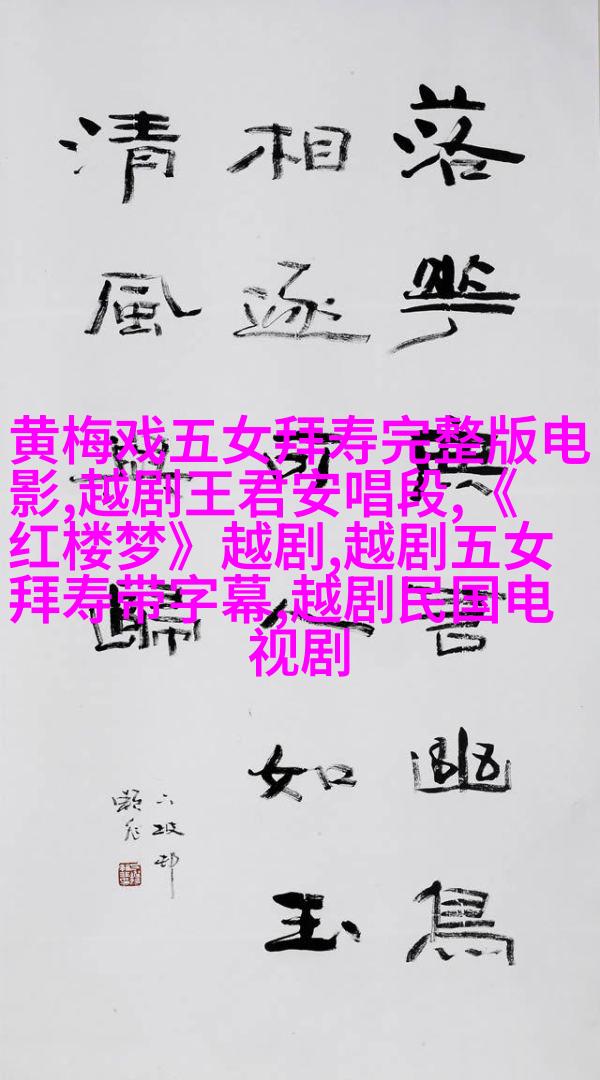 黄梅戏五女拜寿完整版电
影,越剧王君安唱段,《
红楼梦》越剧,越剧五女
拜寿带字幕,越剧民国电
视剧
落華幽鳥
相逐可人如玉
清風與歸